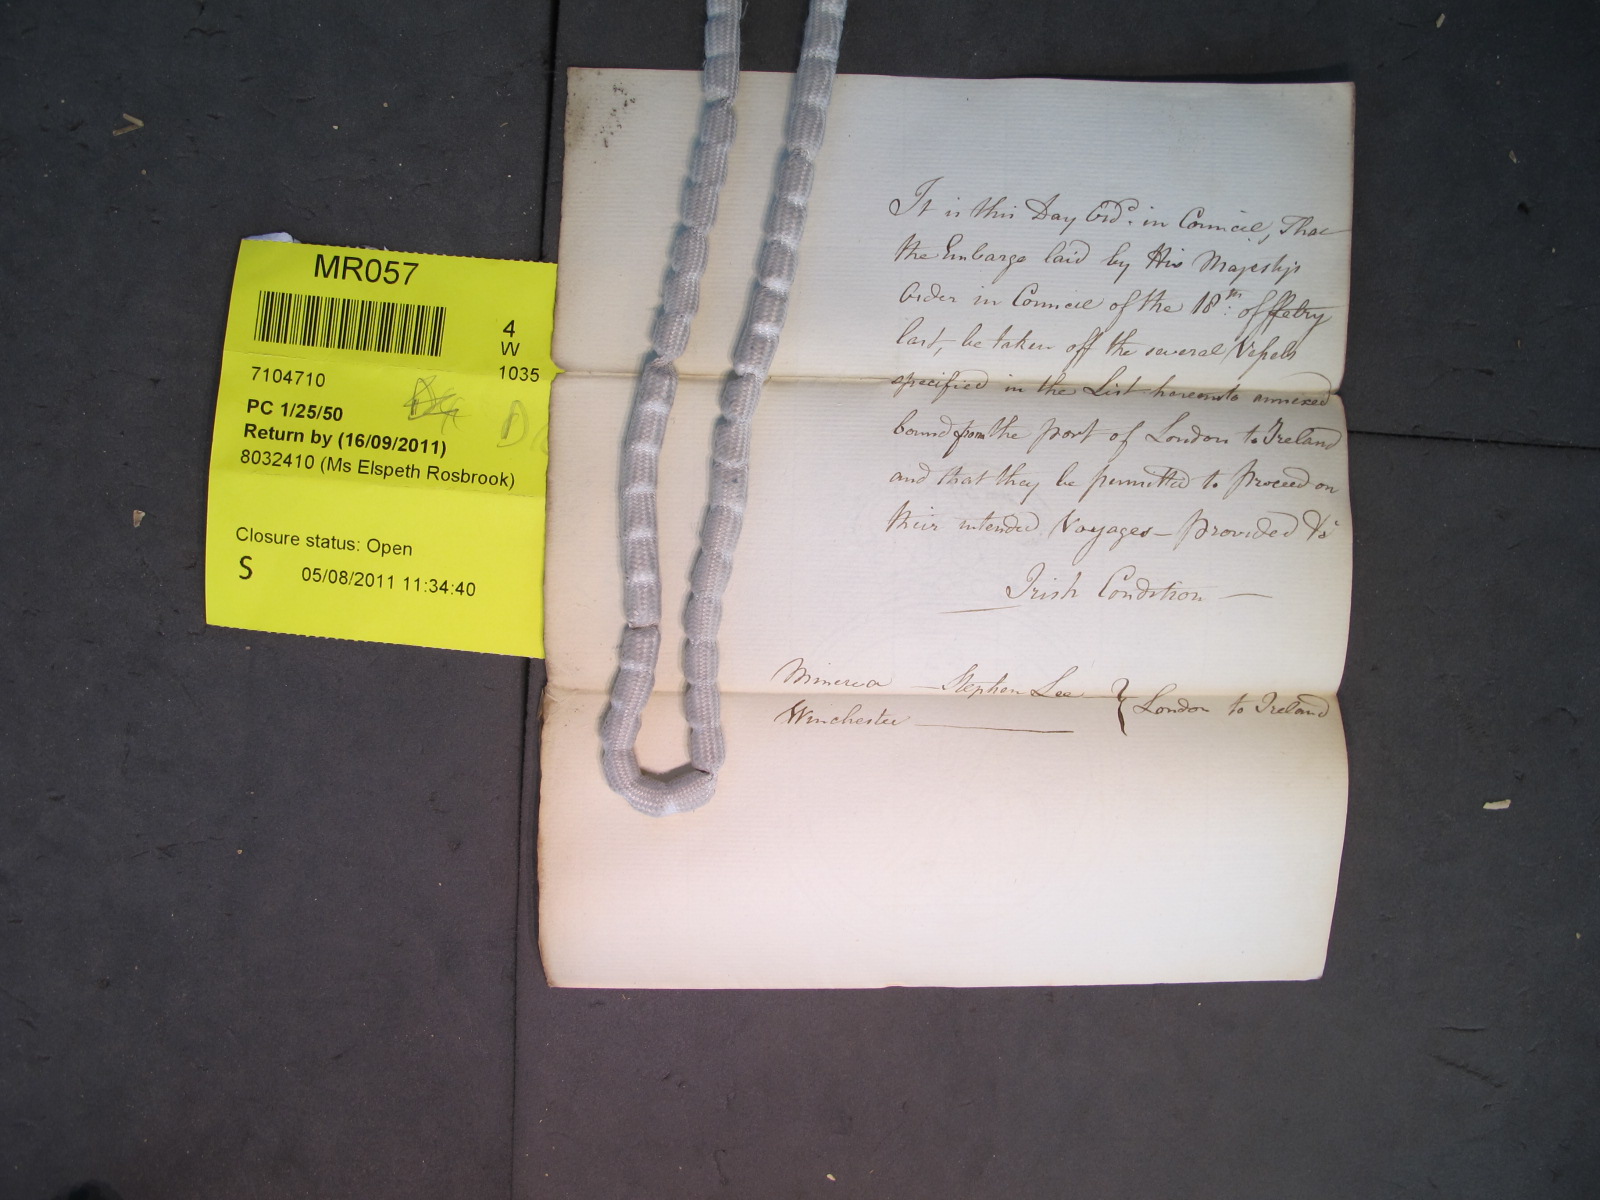 MR057
4
W
1035
7104710
PC 1/25/50
Return by (16/09/2011)
8032410 (Ms Elspeth Rosbrook)
Closure status: Open
S 05/08/2011 11:34:40
It is this Day Ord.d in Council, That
the Embargo laid by His Majesty's
Order in Council of the 18.th of ffebry
last, be taken off the several Vessels
specified in the List hereunto annexed
bound from the port of London to Ireland
and that they be permitted to proceed on
their intended Voyages – provided &c
Irish Condition —
Minerva — Stephen Lee } London to Ireland
Winchester —